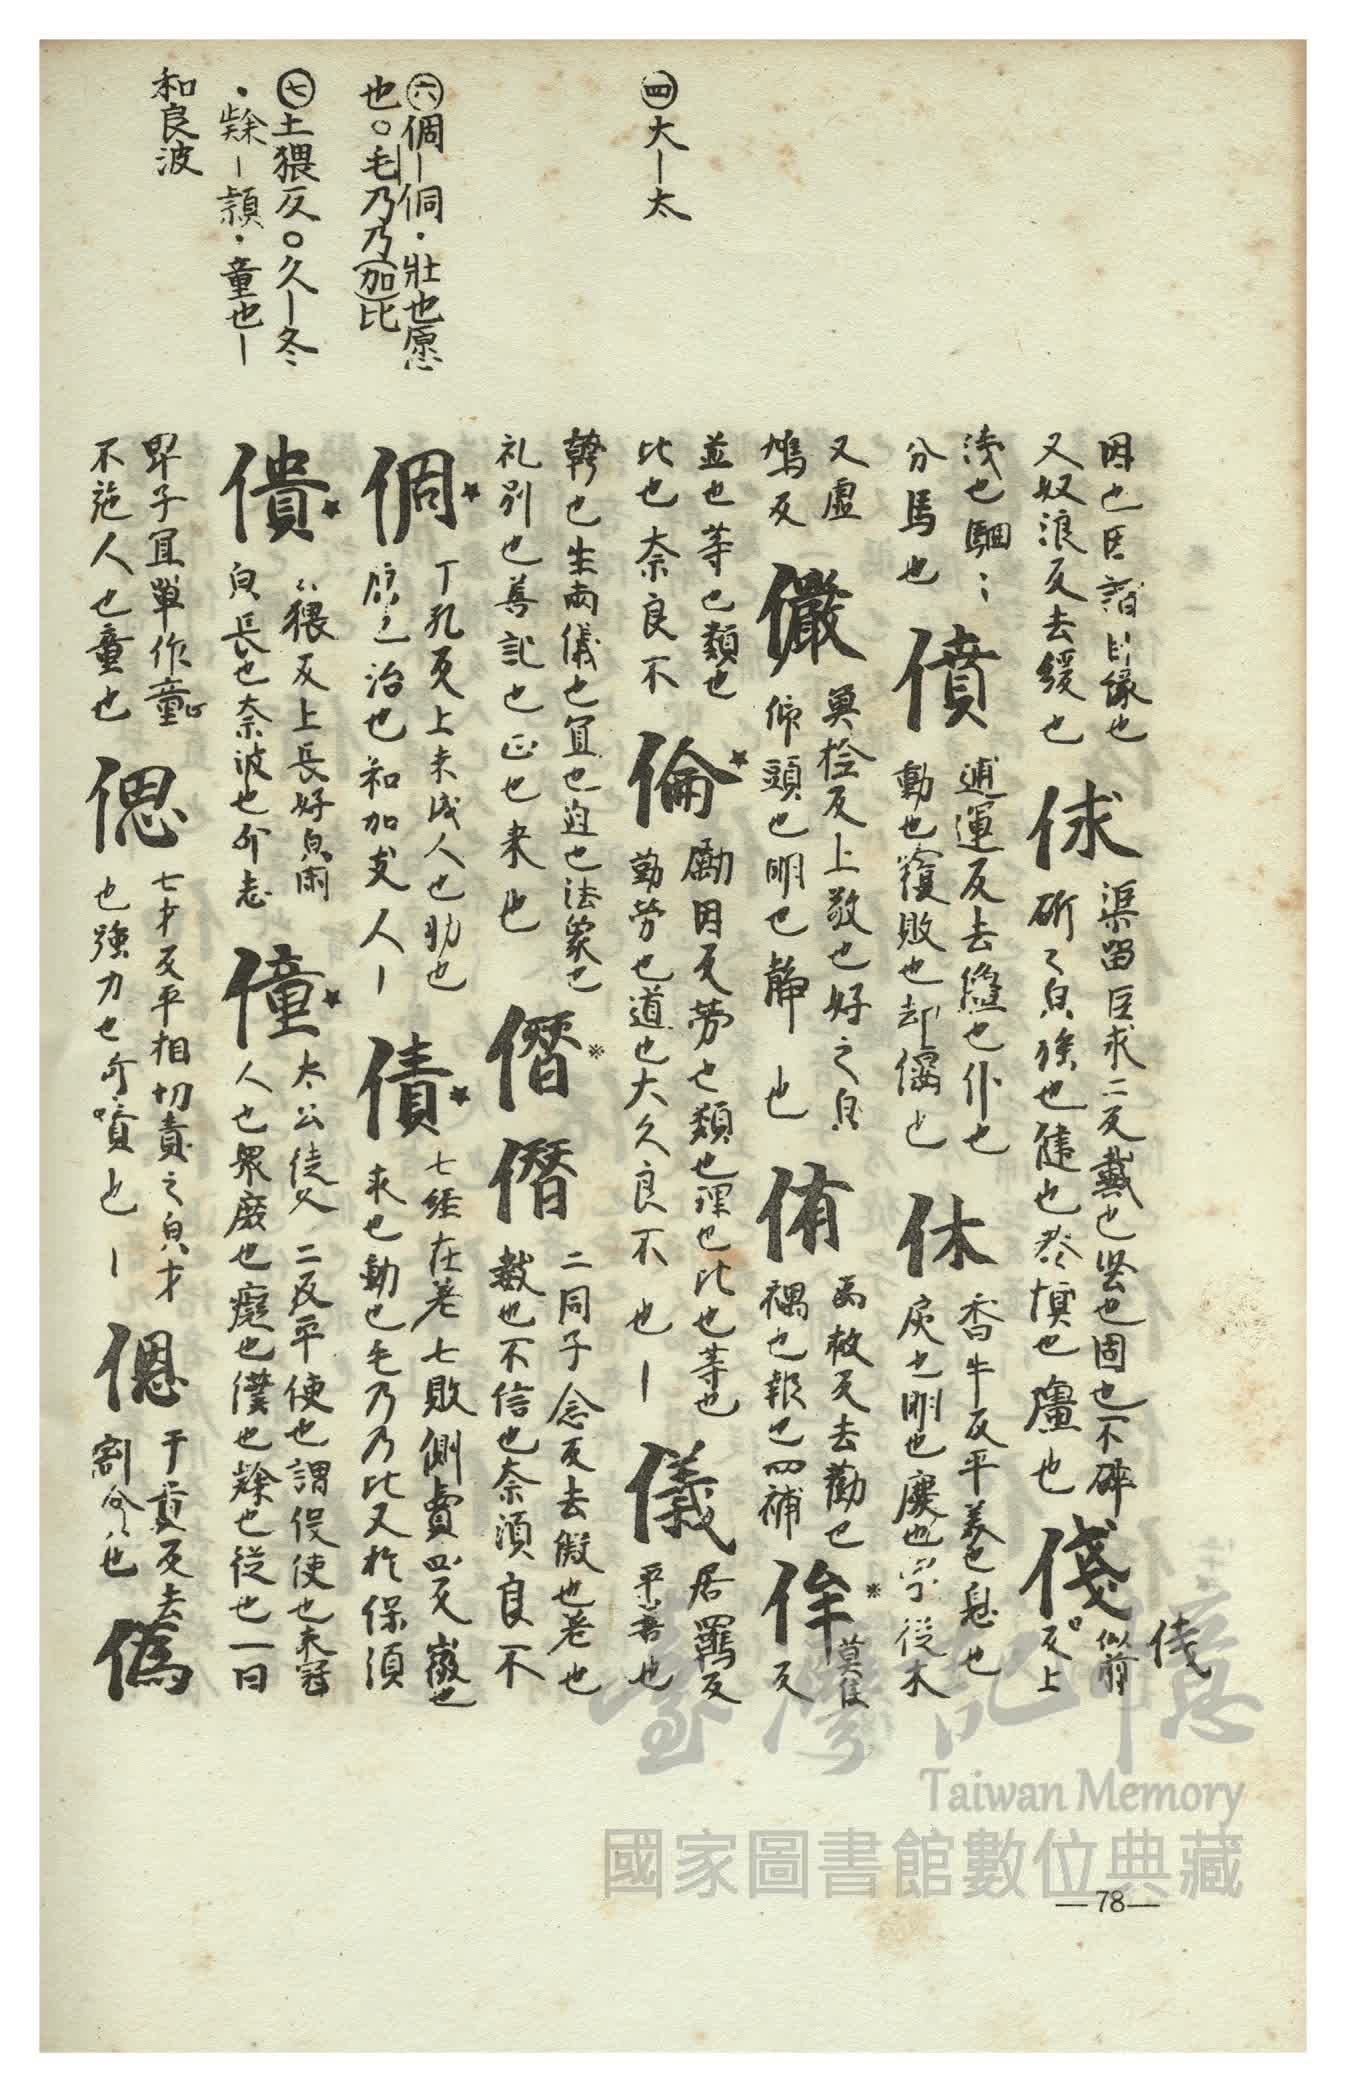 ㊃大一太
㊅倜一侗・壯也愿
也。毛乃乃(加)比
㊆土猥反。久一冬
・懞一穎・童也一
和良波
因也因 緣也
又奴浪反去緩也
俅
渠留巨求二反戴也 也固也不碎
也健也 慎也 也
俴
似前
反上
俴
淺也駰〻
分馬也
僨
逋運反去僵也仆也
動也覆敗也却偃也
休
香牛反平美也息也
戾也明也慶也字從木
又虛
鳩反
儼
魚檢反上敬也好之皃
仰頭也明也靜 也
侑
為救反去勸也
禍也報也四補
侔※
莫侯
反
並也等也類也
比也奈良不
倫★
勵因反勞也類也理也比也等也
勤勞也道也大久良不 也一
儀
居羈反
平善也
也生兩儀也宜也 也法象也
礼別也善記也正也來也
僭※
僭
二同子念反去儗也差也
數也不信也奈須良不
倜★
丁孔反上未成人也助也
治也和加支人一
債★
七經在差七敗側賣四反 也
求也動也毛乃乃比又於保須
僓★
猥反上長好皃閑
皃長也奈波也 志
僮★
太公徒父二反平使也謂役使也未冠
人也眾癈也癡也僕也 也從也一曰
卑子宜單作童
不施人也童也
偲
七才反平相切責之皃才
也強力也 也一
偲
于貴反去
割今也
偽
—78—
臺灣記憶
Taiwan Memory
國家圖書館數位典藏